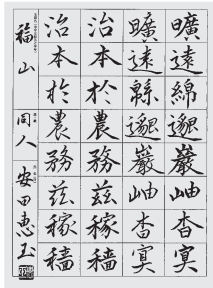 曠遠綿邈巖岫杳冥
曠遠緜邈巖岫杳冥
治本於農務茲稼穡
治本於農務茲稼穡
福山 同人 安田恵玉